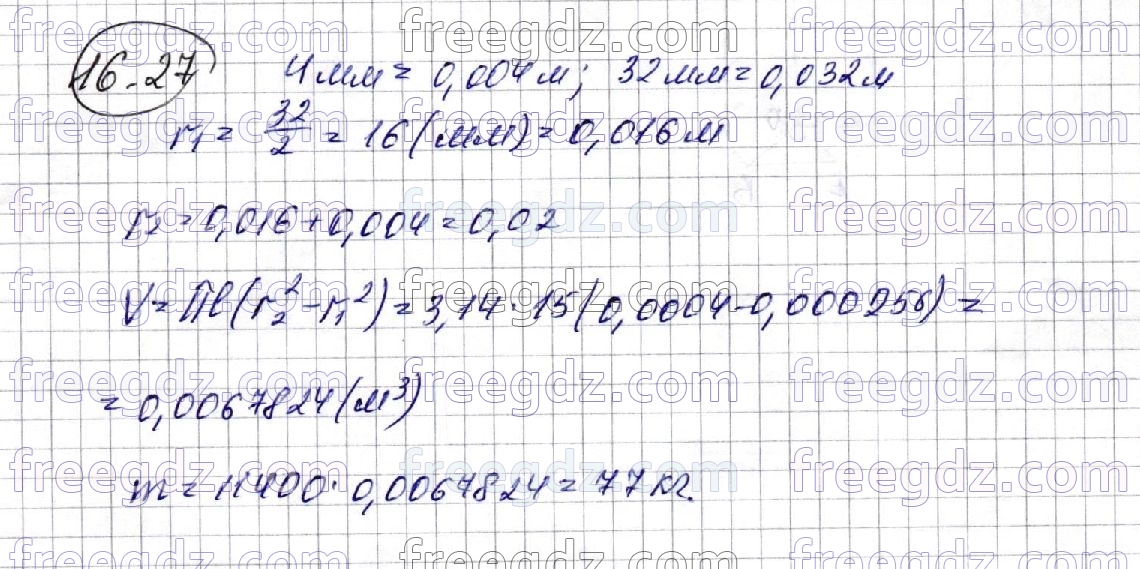 16.27
4мм = 0,004м; 32мм = 0,032м
r₁ = 32/2 = 16 (мм) = 0,016м
r₂ = 0,016 + 0,004 = 0,02
V = Пl(r₂² - r₁²) = 3,14 · 15(0,0004 - 0,000256) =
= 0,0067824 (м³)
m = 11400 · 0,0067824 = 77кг.
freegdz.com freegdz.com freegdz.com
freegdz.com freegdz.com freegdz.com
freegdz.com freegdz.com freegdz.com
freegdz.com freegdz.com freegdz.com
freegdz.com freegdz.com freegdz.com
freegdz.com freegdz.com freegdz.com
freegdz.com freegdz.com freegdz.com